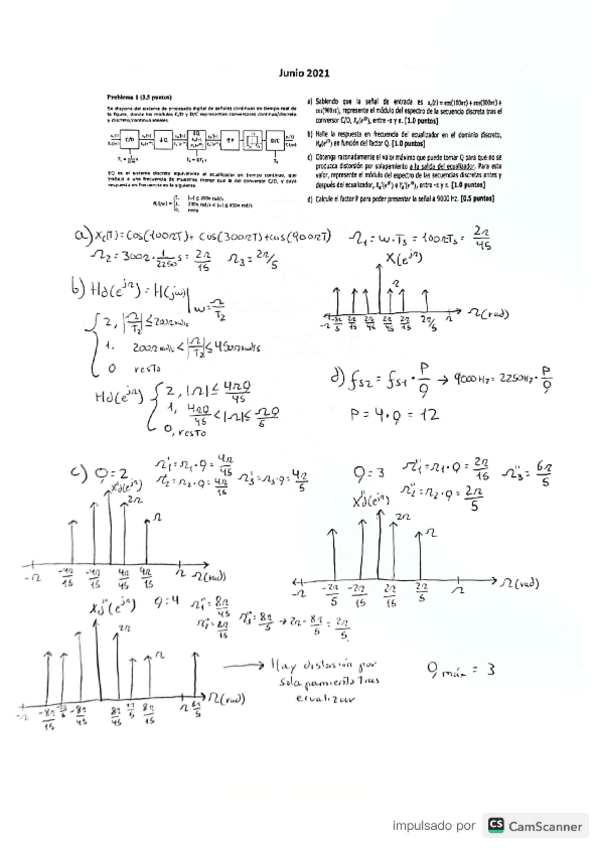 Junio 2021
Problema 1 (3.5 puntos)
Se dispone del sistema de procesado digital de señales continuas en tiempo real de
la figura, donde los módulos C/D y D/C representan conversores continuo/discreto
y discreto/continuo ideales.
C/D
↓Q
EQ
↑P
D/C
EQ es el sistema discreto equivalente al ecualizador en tiempo continuo, que
trabaja a una frecuencia de muestreo menor que la del conversor C/D, y cuya
respuesta en frecuencia es la siguiente:
a) Sabiendo que la señal de entrada es x_c(t) = cos(100πt) + cos(300πt) +
cos(900πt), represente el módulo del espectro de la secuencia discreta tras el
conversor C/D, X_d(e^jΩ), entre -π y π. [1.0 puntos]
b) Halle la respuesta en frecuencia del ecualizador en el dominio discreto,
H_d(e^jΩ) en función del factor Q. [1.0 puntos]
c) Obtenga razonadamente el valor máximo que puede tomar Q para que no se
produzca distorsión por solapamiento a la salida del ecualizador. Para este
valor, represente el módulo del espectro de las secuencias discretas antes y
después del ecualizador, entre -π y π. [1.0 puntos]
d) Calcule el factor P para poder presentar la señal a 9000 Hz. [0.5 puntos]
a) Xc(t) = cos(100πt) + cos(300πt) + cos(900πt) Ω₁ = ω·Ts = 100πTs = 2π/45
Ω₂ = 300π · 1/2250 s = 2π/15 Ω₃ = 2π/5
X(e^jΩ)
π
-π -2π/5 2π/15 2π/45 2π/45 2π/15 2π/5 π Ω(rad)
b) Hd(e^jΩ) = H(jω)| ω = Ω/T₂
2, |Ω/T₂| ≤ 200π rad/s
1, 200π rad/s < |Ω/T₂| ≤ 450π rad/s
0 resto
Hd(e^jΩ) 2, |Ω| ≤ 4πQ/45
1, 4πQ/45 < |Ω| ≤ πQ/5
0, resto
d) fs2 = fs1 · P/Q → 9000 Hz = 2250 Hz · P/Q
P = 4·Q = 12
c) Q = 2 Ω₁' = Ω₁·Q = 4π/45
Ω₂' = Ω₂·Q = 4π/15 Ω₃' = Ω₃·Q = 4π/5
Xd(e^jΩ)
2π
π
-π -4π/15 -4π/45 4π/45 4π/15 π Ω(rad)
Q = 3 Ω₁'' = Ω₁·Q = 2π/15 Ω₃'' = 6π/5
Ω₂'' = Ω₂·Q = 2π/5
Xd''(e^jΩ)
2π
π
-2π/5 -2π/15 2π/15 2π/5 π Ω(rad)
Xd''(e^jΩ) Q = 4 Ω₁'' = 8π/45
8π/15 Ω₃'' = 8π/5 → 2π - 8π/5 = 2π/5
2π
π
-π -8π/15 -8π/45 8π/45 2π/5 8π/15 π Ω(rad)
→ Hay distorsión por
solapamiento tras
ecualizar
Qmáx = 3
impulsado por CS CamScanner